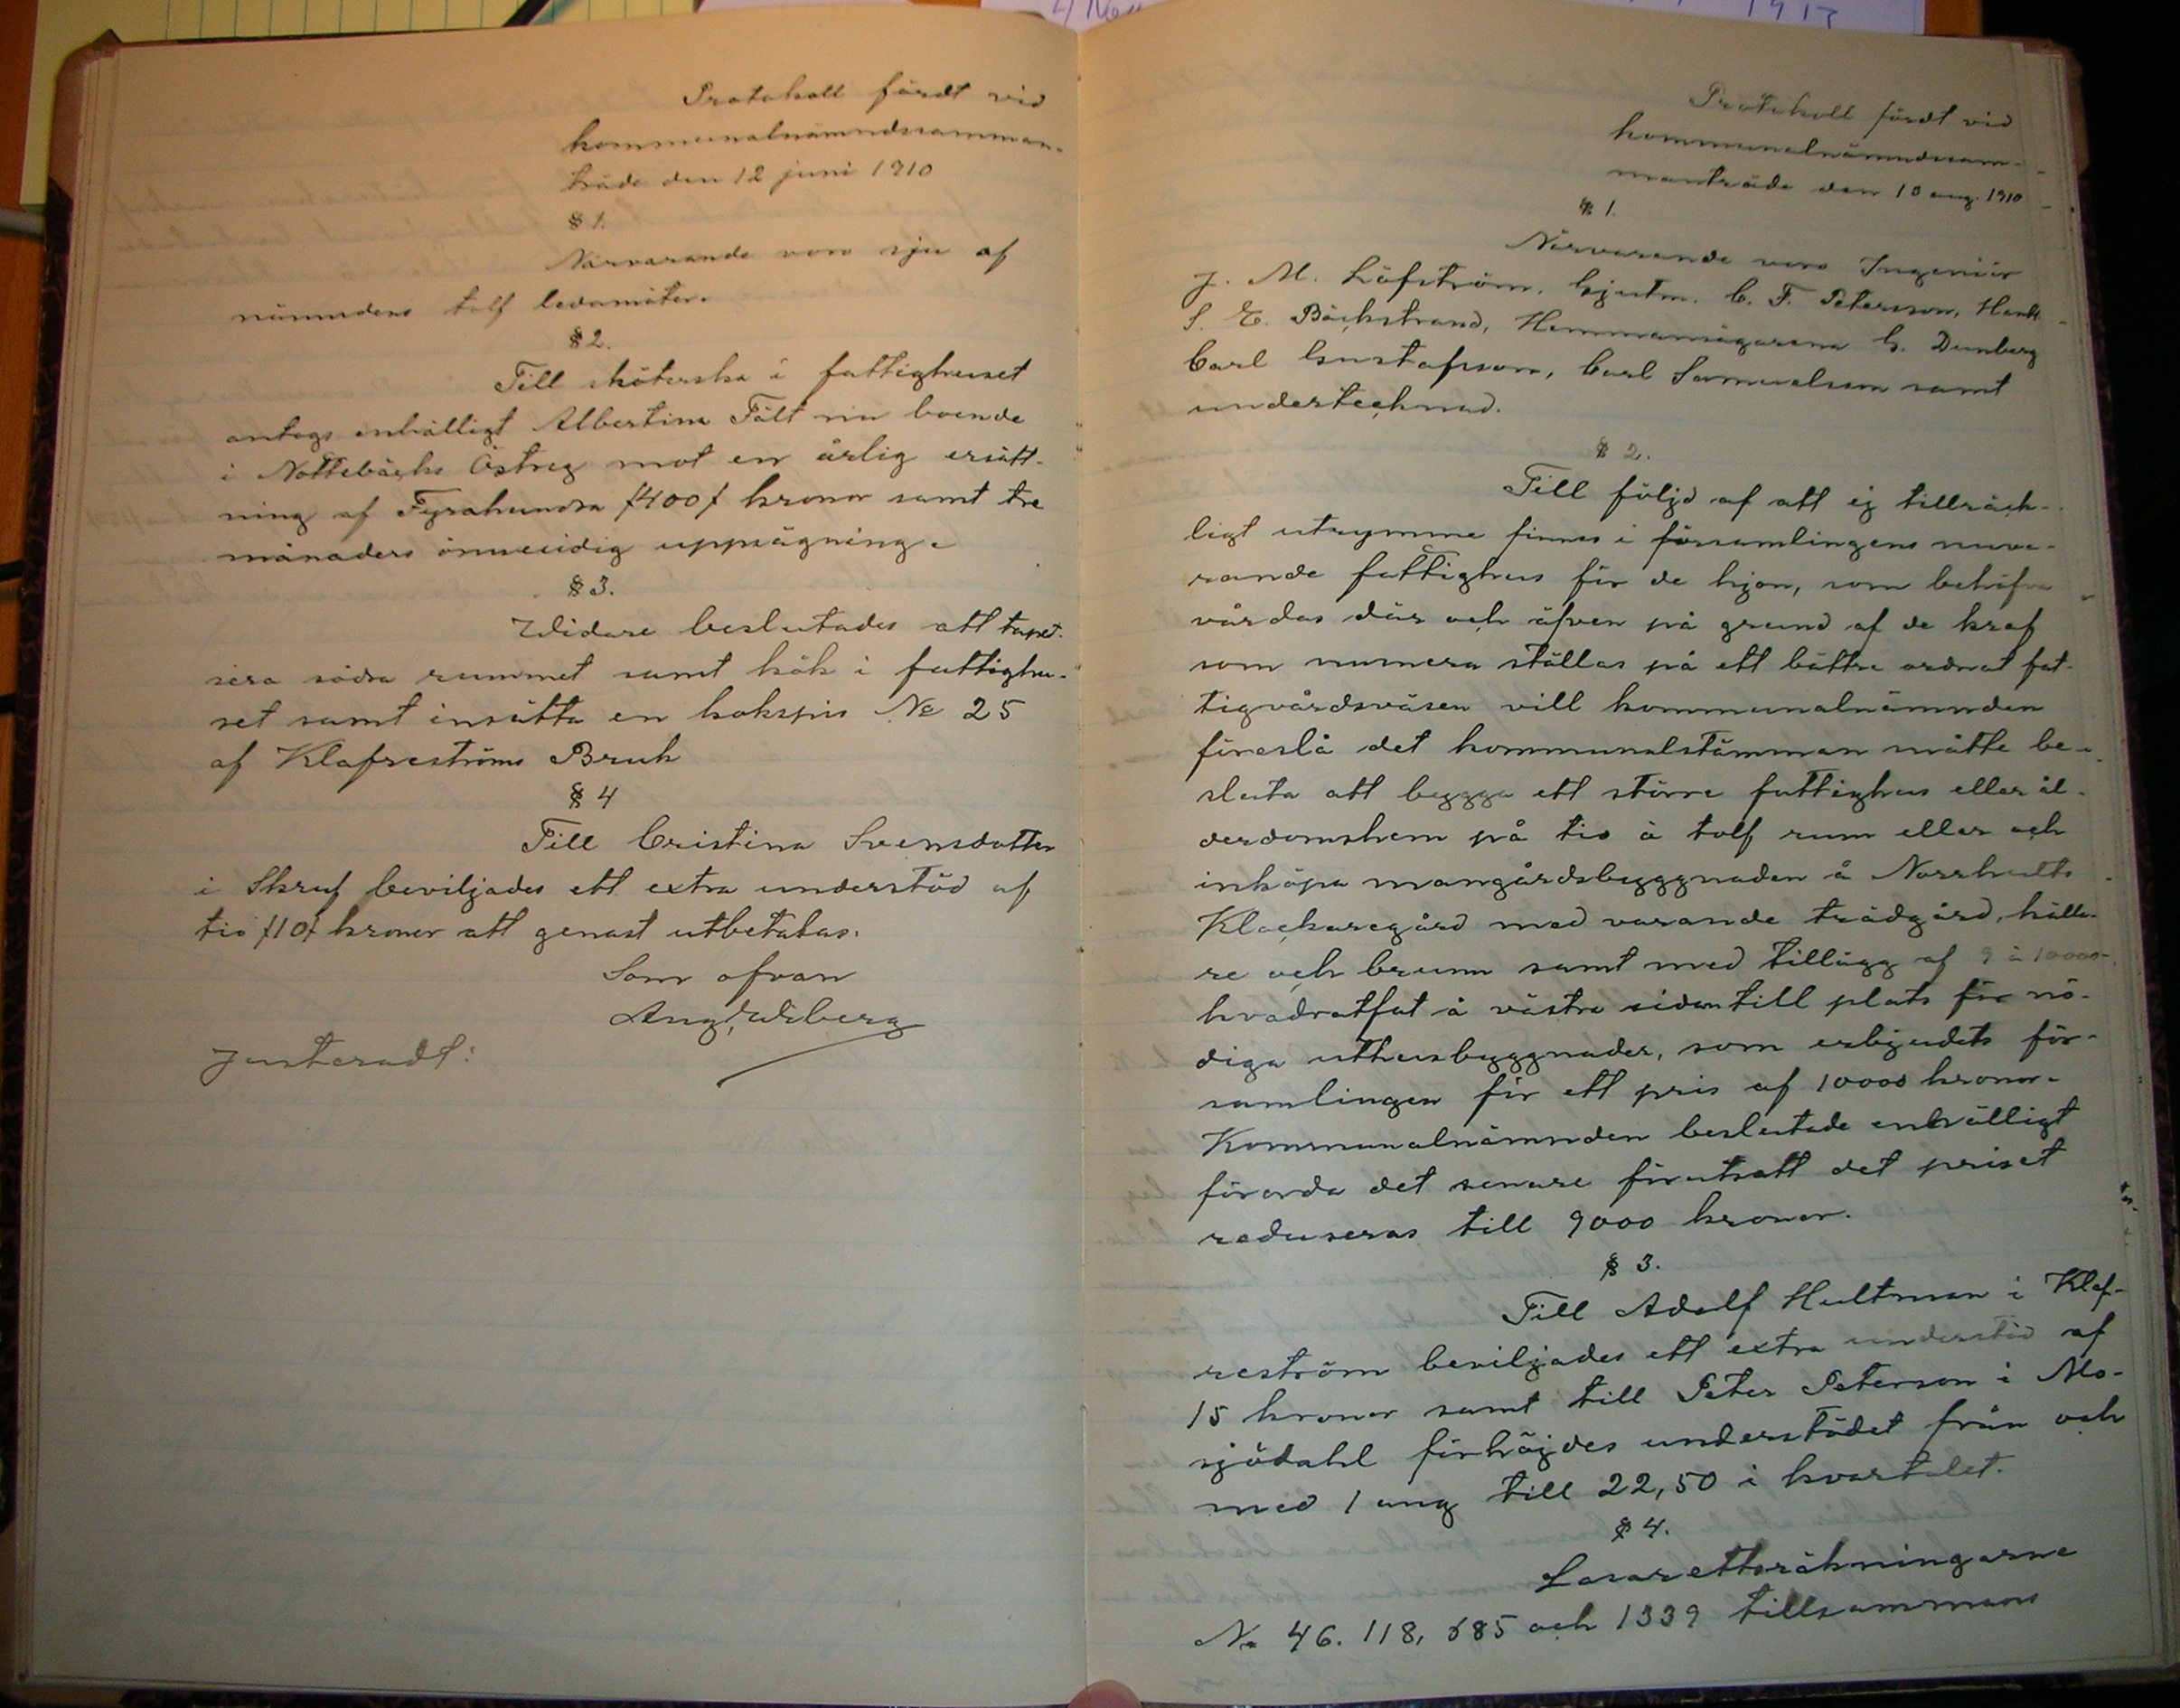 Protokoll fördt vid
kommunalnämndssamman-
träde den 12 juni 1910
§ 1.
Närvarande voro sju af
nämndens tolf ledamöter.
§ 2.
Till sköterska i fattighuset
antogs enhälligt Albertina Fält nu boende
i Nottebäcks Östreg mot en årlig ersätt-
ning af Fyrahundra /400/ kronor samt tre
månaders ömsesidig uppsägning.
§ 3.
Widare beslutades att tapet-
sera södra rummet samt kök i fattighu-
set samt insätta en kokspis No 25
af Klafreströms Bruk
§ 4
Till Cristina Svensdotter
i Skruf beviljades ett extra understöd af
tio /10/ kronor att genast utbetalas.
Som ofvan
Aug. Wiberg
Justeradt:
Protokoll fördt vid
kommunalnämndssam-
manträde den 10 aug. 1910
§ 1.
Närvarande voro Ingeniör
J. M. Löfström, Gjutm. C. F. Peterson, Handl.
S. E. Bäckstrand, Hemmansägarena G. Dunberg
Carl Gustafsson, Carl Samuelsson samt
undertecknad.
§ 2.
Till följd af att ej tillräck-
ligt utrymme finnes i församlingens nuva-
rande fattighus för de hjon, som behöfva
vårdas där och äfven på grund af de kraf
som numera ställas på ett bättre ordnat fat-
tigvårdsväsen vill kommunalnämnden
föreslå det kommunalstämman måtte be-
sluta att bygga ett större fattighus eller ål-
derdomshem på tio à tolf rum eller och
inköpa mangårdsbyggnaden å Norrhults
Klockaregård med varande trädgård, källa-
re och brunn samt med tillägg af 9 à 10000
kvadratfot å västra sidan till plats för nö-
diga uthusbyggnader, som erbjudets för-
samlingen för ett pris af 10000 kronor.
Kommunalnämnden beslutade enhälligt
förorda det senare förutsatt det priset
reduseras till 9000 kronor.
§ 3.
Till Adolf Hultman i Klaf-
reström beviljades ett extra understöd af
15 kronor samt till Peter Peterson i Mo-
sjödahl förhöjdes understödet från och
med 1 aug till 22,50 i kvartalet.
§ 4.
Lasarettsräkningarne
No 46. 118, 685 och 1339 tillsammans